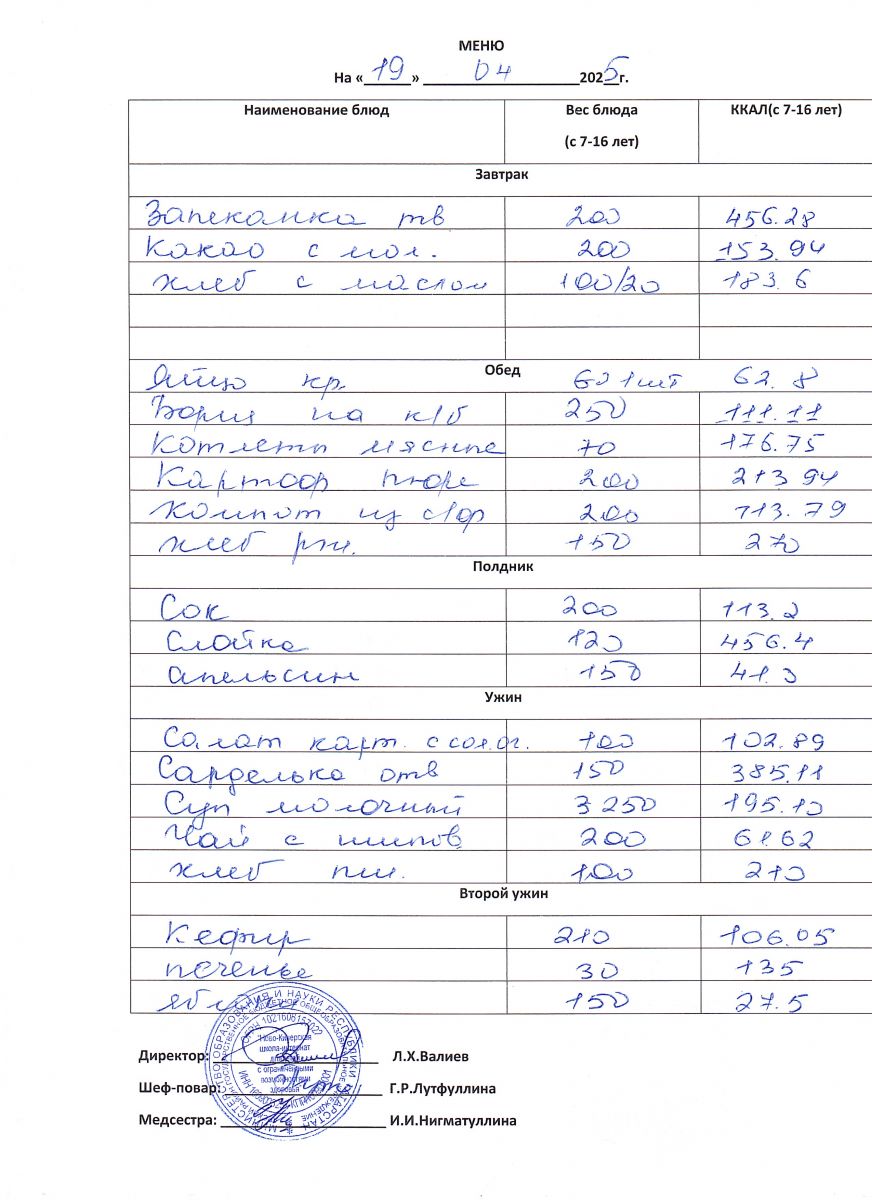 МЕНЮ
На «19» 04 2025г.
Наименование блюд Вес блюда (с 7-16 лет) ККАЛ(с 7-16 лет)
Завтрак
Запеканка тв 200 456.28
Какао с мол. 200 153.94
хлеб с маслом 100/20 183.6
Обед
Яйцо кр. 60 1шт 62.8
Борщ на к/б 250 111.11
Котлеты мясные 70 176.75
Картоф пюре 200 213 94
Компот из с/ф 200 113.79
хлеб рж. 150 270
Полдник
Сок 200 113.2
Слойка 120 456.4
апельсин 150 41.3
Ужин
Салат карт. с сол.ог. 100 102.89
Сарделька отв 150 385.11
Суп молочный 250 195.10
Чай с шипов 200 61.62
хлеб пш. 100 210
Второй ужин
Кефир 210 106.05
печенье 30 135
150 27.5
Директор: Л.Х.Валиев
Шеф-повар: Г.Р.Лутфуллина
Медсестра: И.И.Нигматуллина